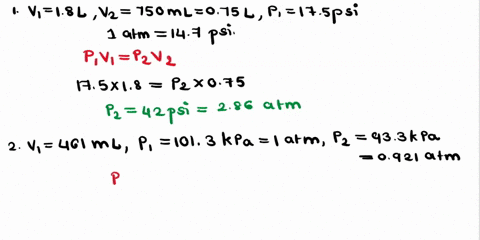 1. V₁=1.8L, V₂ = 750mL=0.75L, P₁=17.5psi
1 atm = 14.7 psi.
P₁V₁=P₂V₂
17.5×1.8 = P₂×0.75
P₂=42psi = 2.86 atm
2. V₁=461 mL, P₁=101.3 kPa=1 atm, P₂=93.3kPa
=0.921 atm
P